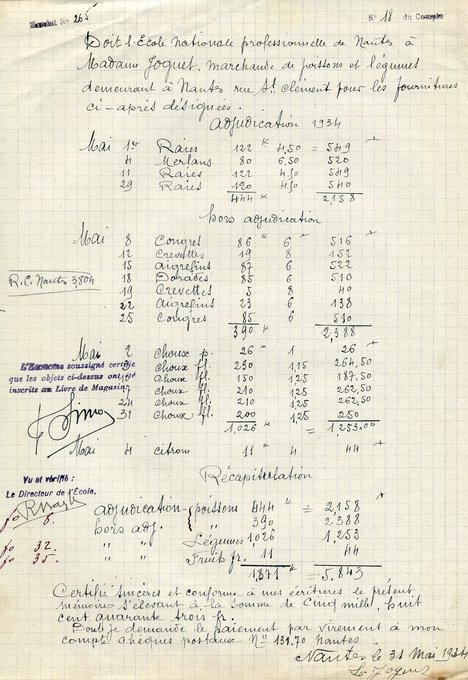 Mandat N° 265
N° 18 du Compte
Doit l'Ecole Nationale professionnelle de Nantes à
Madame Joguet, marchande de poissons et légumes
demeurant à Nantes rue St. Clément pour les fournitures
ci-après désignées.
adjudication 1934
Mai 1er Raies 122 K 4,50 = 549 f
4 Merlans 80 6,50 520
11 Raies 122 4,50 549
29 Raies 120 4,50 540
444 K 2,158
hors adjudication
Mai 8 Congres 86 K 6 516 f
12 Crevettes 19 8 152
15 aigrefins 87 6 522
R.C. Nantes 3,804
18 Dorades 85 6 510
19 Crevettes 5 8 40
22 Aigrefins 23 6 138
25 Congres 85 6 510
390 K 2,388
Mai 2 Choux p. 26 K 1 26 f
L'Econome soussigné certifie
que les objets ci-dessus ont été
inscrits au Livre de Magasin
Choux fl. 230 1,15 264,50
Choux fl. 150 1,25 187,50
Choux fl. 210 1,25 262,50
24 Choux fl. 210 1,25 262,50
31 Choux fl. 200 1,25 250
1,026 K = 1253.00
Mai 4 citrons 11 K 4 44 f
Récapitulation
Vu et vérifié :
Le Directeur de l'École,
adjudication - poissons 444 K = 2,158 f
fo 6.
hors adj. " 390 2388
fo 32.
" " Légumes 1026 1,253
fo 35.
" " Fruits fr. 11 44
1,871 K = 5,843
Certifié sincères et conforme à mes écritures le présent
mémoire s'élevant à la somme de Cinq mille, huit
cent quarante trois fr.
Dont je demande le paiement par virement à mon
compte chèques postaux N° 131.70 Nantes
Nantes le 31 Mai 1934